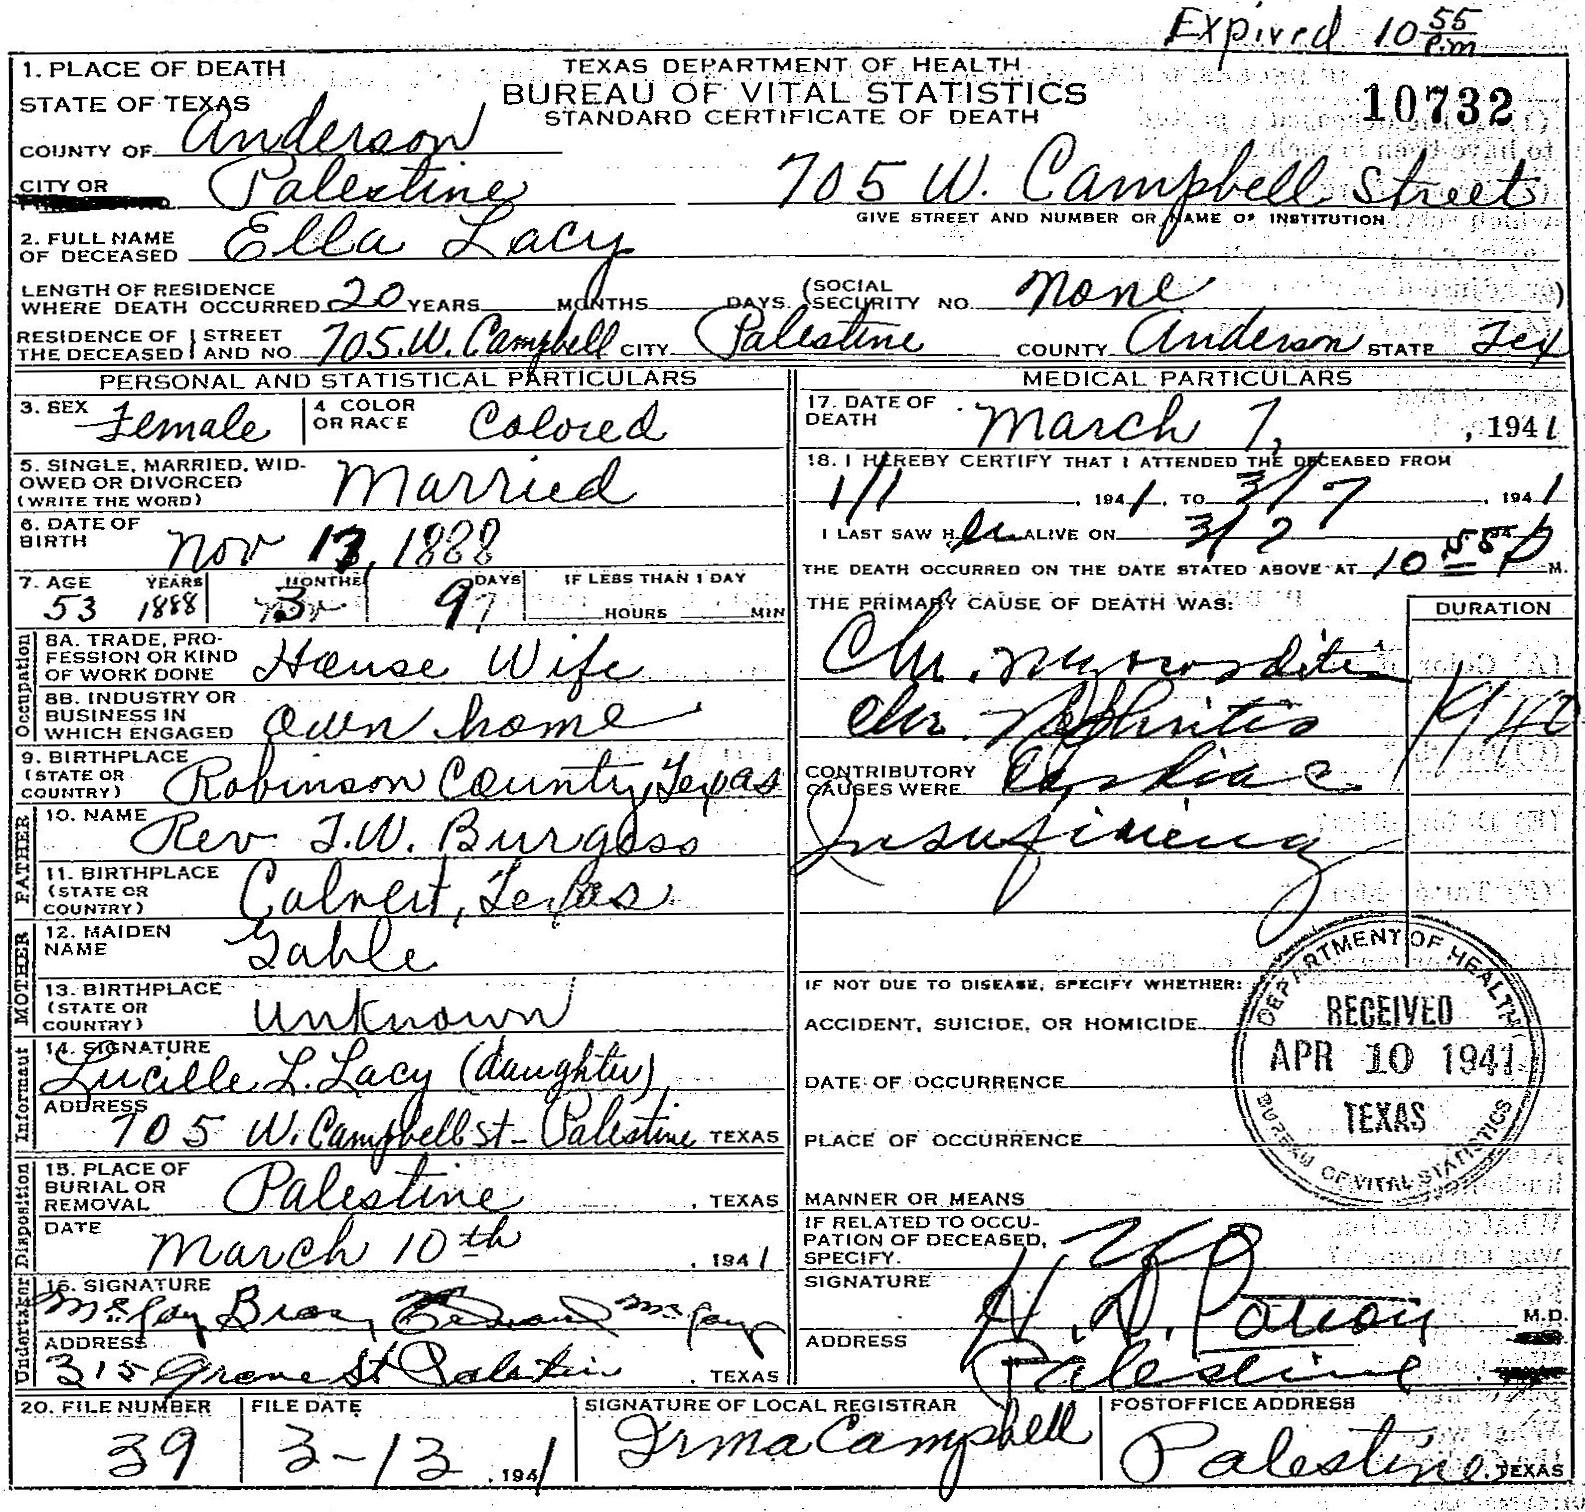 Expired 10 55 P.m
1. PLACE OF DEATH
STATE OF TEXAS
TEXAS DEPARTMENT OF HEALTH
BUREAU OF VITAL STATISTICS
STANDARD CERTIFICATE OF DEATH
10732
COUNTY OF Anderson
CITY OR Palestine 705 W. Campbell Street
GIVE STREET AND NUMBER OR NAME OF INSTITUTION
2. FULL NAME OF DECEASED Ella Lacy
LENGTH OF RESIDENCE WHERE DEATH OCCURRED 20 YEARS MONTHS DAYS. (SOCIAL SECURITY NO. None )
RESIDENCE OF THE DECEASED STREET AND NO. 705 W. Campbell CITY Palestine COUNTY Anderson STATE Tex
PERSONAL AND STATISTICAL PARTICULARS
3. SEX Female 4. COLOR OR RACE Colored
5. SINGLE, MARRIED, WIDOWED OR DIVORCED (WRITE THE WORD) Married
6. DATE OF BIRTH Nov 13, 1888
7. AGE YEARS MONTHS DAYS IF LESS THAN 1 DAY
53 1888 3 9 HOURS MIN
Occupation
8A. TRADE, PROFESSION OR KIND OF WORK DONE House Wife
8B. INDUSTRY OR BUSINESS IN WHICH ENGAGED Own home
9. BIRTHPLACE (STATE OR COUNTRY) Robinson County, Texas
FATHER
10. NAME Rev. T.W. Burgess
11. BIRTHPLACE (STATE OR COUNTRY) Calvert, Texas
MOTHER
12. MAIDEN NAME Gable
13. BIRTHPLACE (STATE OR COUNTRY) Unknown
Informant
14. SIGNATURE Lucille L. Lacy (daughter)
ADDRESS 705 W. Campbell St - Palestine TEXAS
Disposition
15. PLACE OF BURIAL OR REMOVAL Palestine, TEXAS
DATE March 10th, 1941
Undertaker
16. SIGNATURE Bros
ADDRESS 315 Grove St Palestine, TEXAS
MEDICAL PARTICULARS
17. DATE OF DEATH March 7, , 1941
18. I HEREBY CERTIFY THAT I ATTENDED THE DECEASED FROM
1/1, 1941, TO 3/7, 1941
I LAST SAW H er ALIVE ON 3/7
THE DEATH OCCURRED ON THE DATE STATED ABOVE AT 10 55 P M.
THE PRIMARY CAUSE OF DEATH WAS: DURATION
Chr. Myocarditis
Chr. Nephritis 1940
CONTRIBUTORY CAUSES WERE Cardiac
Insuficiency
IF NOT DUE TO DISEASE, SPECIFY WHETHER:
ACCIDENT, SUICIDE, OR HOMICIDE
DATE OF OCCURRENCE
PLACE OF OCCURRENCE
MANNER OR MEANS
DEPARTMENT OF HEALTH
RECEIVED
APR 10 1941
TEXAS
BUREAU OF VITAL STATISTICS
IF RELATED TO OCCUPATION OF DECEASED, SPECIFY. no
SIGNATURE H. D. M.D.
ADDRESS Palestine
20. FILE NUMBER 39
FILE DATE 3-13, 1941
SIGNATURE OF LOCAL REGISTRAR Irma Campbell
POSTOFFICE ADDRESS Palestine, TEXAS